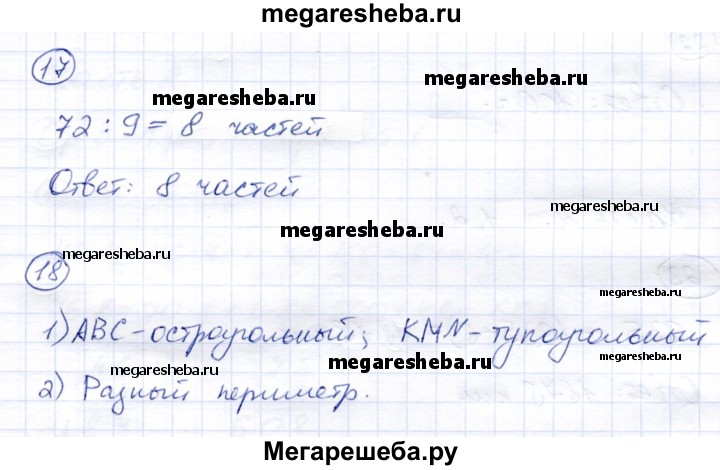 megaresheba.ru
17
megaresheba.ru
megaresheba.ru
72 : 9 = 8 частей
Ответ: 8 частей
megaresheba.ru
megaresheba.ru
18
megaresheba.ru
1) ABC - остроугольный; KMN - тупоугольный
megaresheba.ru
megaresheba.ru
megaresheba.ru
2) Разный периметр.
Мегарешеба.ру